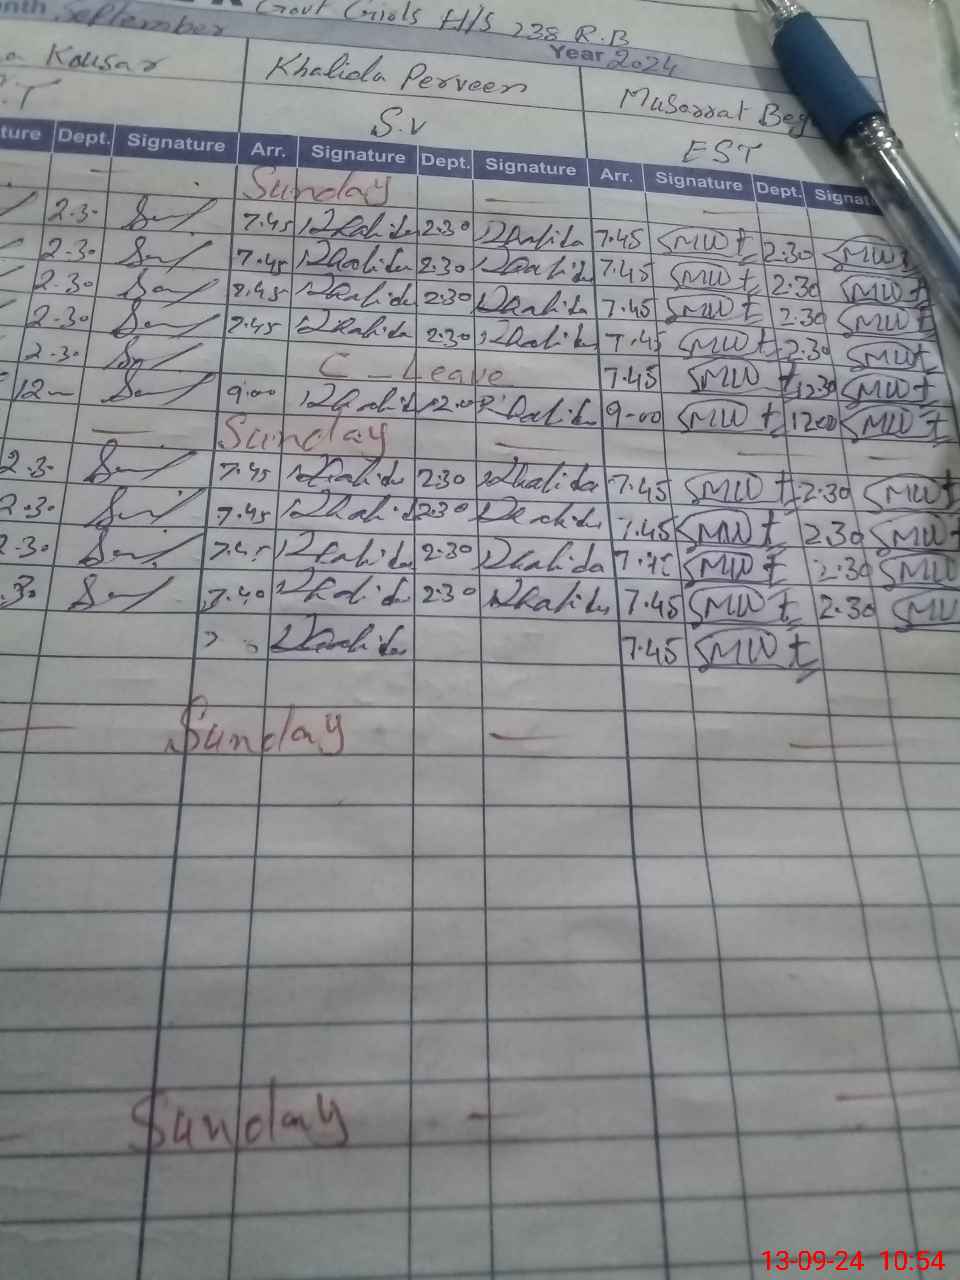 Month September Govt Girls H/S 238 R.B
Year 2024
a Kousar Khalida Perveen Musarrat Beg
.T S.V EST
ture Dept. Signature Arr. Signature Dept. Signature Arr. Signature Dept. Signat
Sunday
2.30 7.45 Khalida 2.30 Khalida 7.45 2.30
2.30 7.45 Khalida 2.30 Khalida 7.45 2.30
2.30 7.45 Khalida 2.30 Khalida 7.45 2.30
2.30 7.45 Khalida 2.30 Khalida 7.45 2.30
2.30 C-Leave 7.45 12.30
12 9:00 Khalida 12.00 Khalida 9-00 12.00
Sunday
2.30 7.45 Khalida 2.30 Khalida 7.45 2.30
2.30 7.45 Khalida 2.30 Khalida 7.45 2.30
2.30 7.45 Khalida 2.30 Khalida 7.45 2.30
.30 7.40 Khalida 2.30 Khalida 7.45 2.30
Khalida 7.45
Sunday
Sunday
13-09-24 10:54